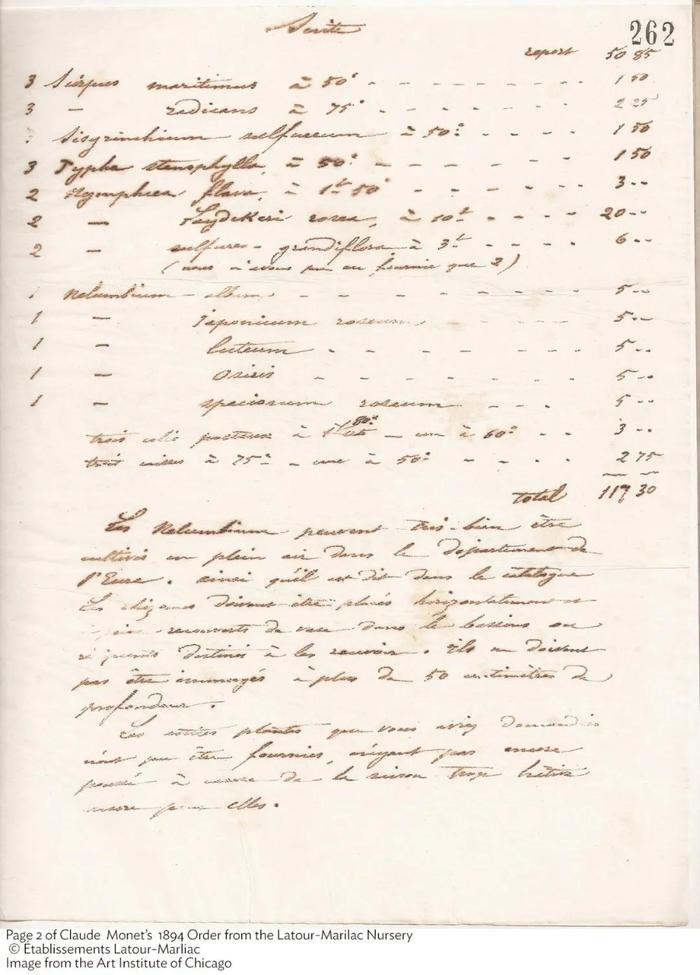 Suite
262
report 50 85
3 Scirpus maritimus à 50c - - - - - - - 1 50
3 — radicans à 75c - - - - - - 2 25
Sisyrinchium sulfureum à 50c - - - - 1 50
3 Typha stenophylla, à 50c - - - - - 1 50
2 Nymphea flava, à 1f 50c - - - - - 3 --
2 — Laydekeri rosea, à 10f - - - - - 20 --
2 — sulfurea grandiflora à 3f - - - - - 6 --
(nous n'avons pu en fournir que 2)
1 Nelumbium album - - - - - - - - 5 --
1 — Japonicum roseum - - - - - 5 --
1 — luteum - - - - - - - - 5 --
1 — Osiris - - - - - - - - - 5 --
1 — speciosum roseum - - - - 5 --
trois colis postaux à — un à 60c - - - 3 --
trois caisses à 75c - une à 50c - - - - 2 75
total 117 30
Les Nelumbium peuvent très-bien être
cultivés en plein air dans le département de
l'Eure. ainsi qu'il est dit dans le catalogue
Les rhizomes doivent être placés horizontalement et
recouverts de vase dans le bassins ou
destinés à les recevoir. ils ne doivent
pas être immergés à plus de 50 centimètres de
profondeur.
Les autres plantes que vous avez demandées
n'ont pu être fournies, n'ayant pas encore
poussé à cause de la saison trop hâtive
encore pour elles.
Page 2 of Claude Monet's 1894 Order from the Latour-Marilac Nursery
© Etablissements Latour-Marliac
Image from the Art Institute of Chicago